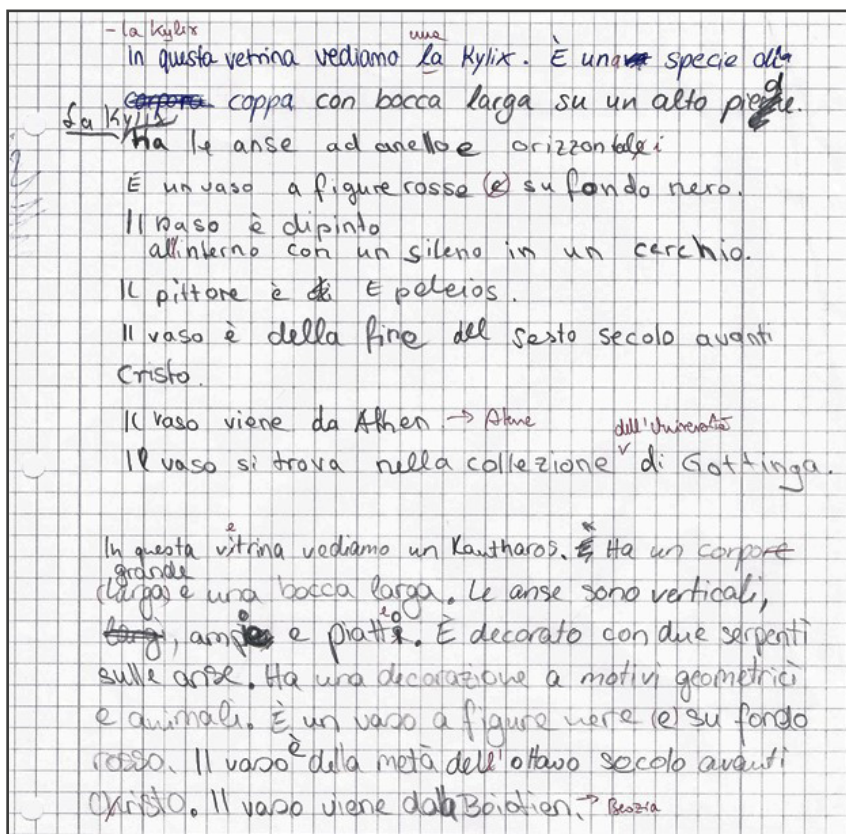 - la kylix
una
In questa vetrina vediamo la Kylix. È una specie di
corpora coppa con bocca larga su un alto piede.
La Kylix
Ha le anse ad anello e orizzontali
È un vaso a figure rosse (e) su fondo nero.
Il vaso è dipinto
all'interno con un sileno in un cerchio.
Il pittore è di Epeleios.
Il vaso è della fine del sesto secolo avanti
Cristo.
Il vaso viene da Athen → Atene
dell'Università
Il vaso si trova nella collezione di Gottinga.
e
In questa vitrina vediamo un Kantharos. Ha un corpore
grande
(larga) e una bocca larga. Le anse sono verticali,
largi, ampie e piatte. È decorato con due serpenti
sulle anse. Ha una decorazione a motivi geometrici
e animali. È un vaso a figure nere (e) su fondo
rosso. Il vaso è della metà dell'ottavo secolo avanti
Christo. Il vaso viene dalla Boiotien. → Beozia